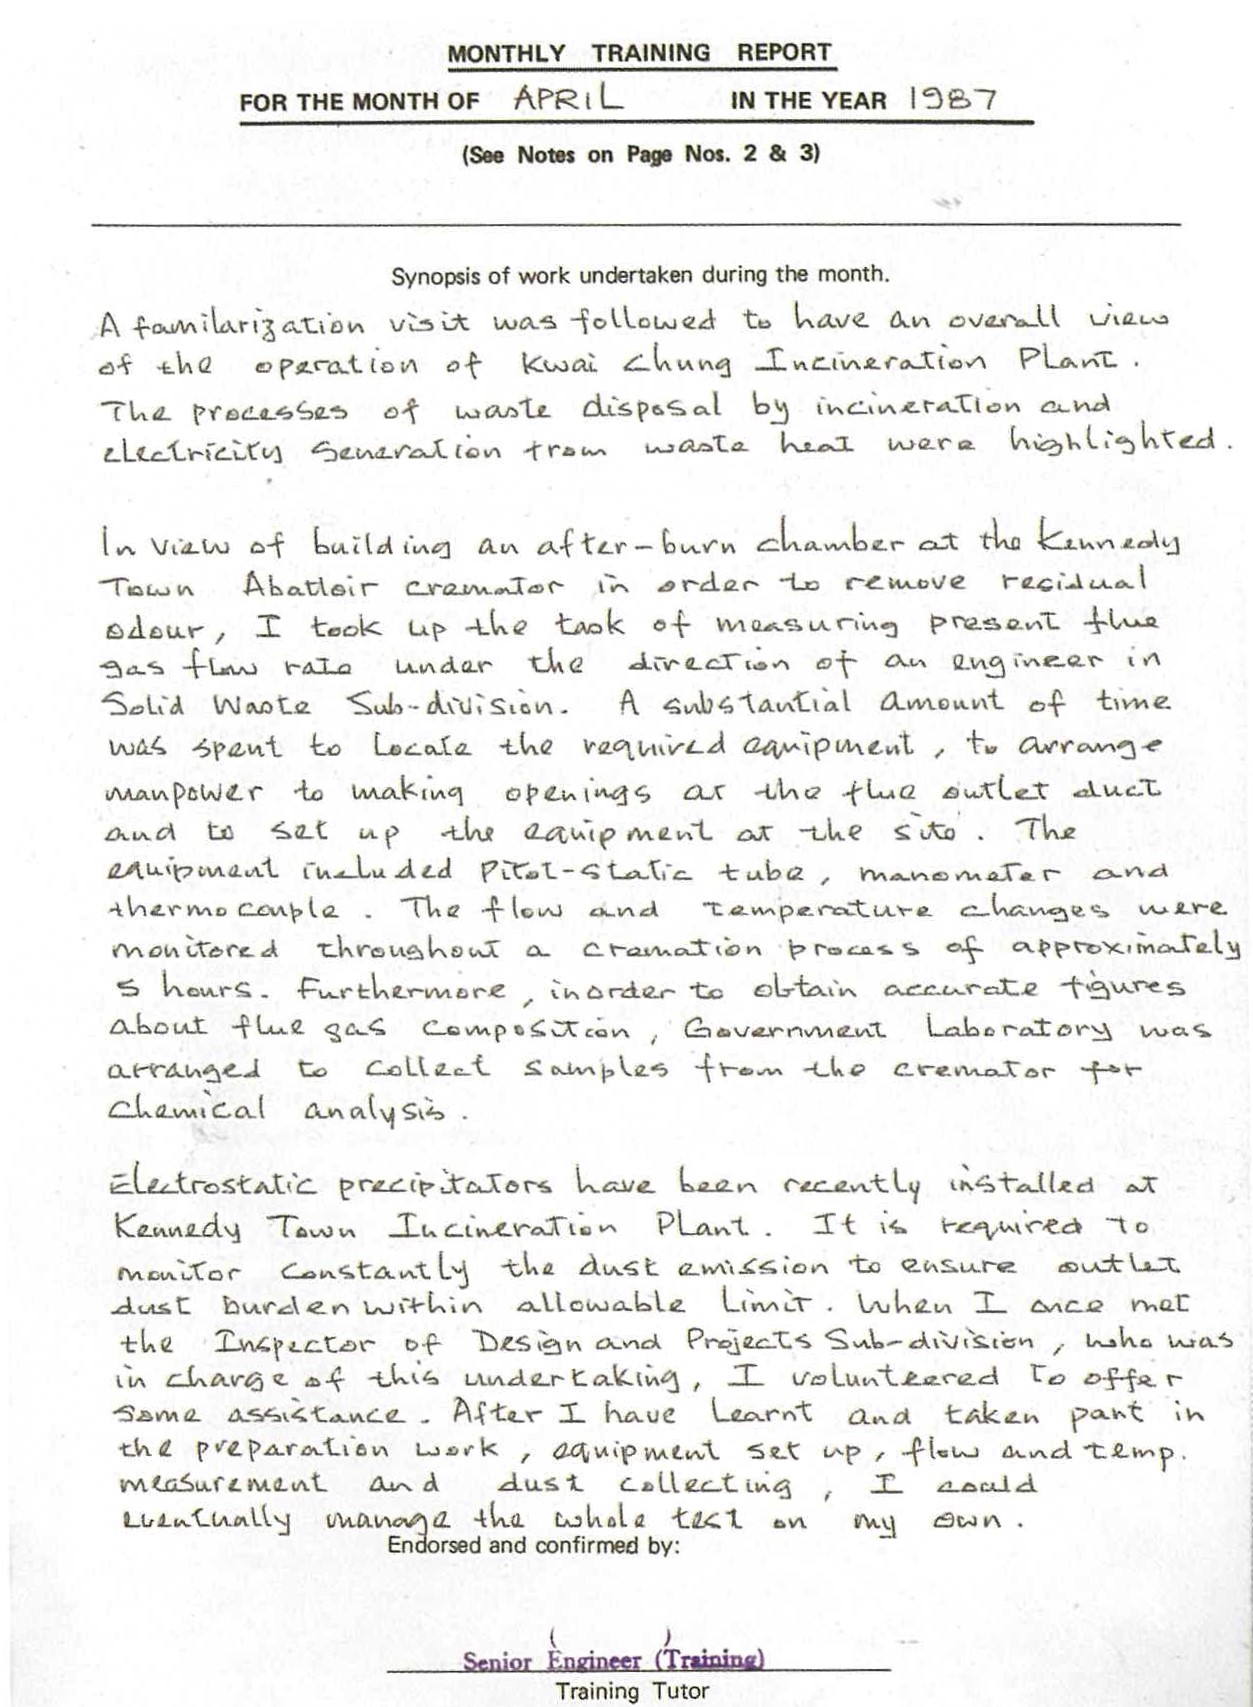 MONTHLY TRAINING REPORT
FOR THE MONTH OF APRIL IN THE YEAR 1987
(See Notes on Page Nos. 2 & 3)
Synopsis of work undertaken during the month.
A familarization visit was followed to have an overall view
of the operation of Kwai Chung Incineration Plant.
The processes of waste disposal by incineration and
electricity generation from waste heat were highlighted.
In view of building an after-burn chamber at the Kennedy
Town Abattoir cremator in order to remove residual
odour, I took up the task of measuring present flue
gas flow rate under the direction of an engineer in
Solid Waste Sub-division. A substantial amount of time
was spent to locate the required equipment, to arrange
manpower to making openings at the flue outlet duct
and to set up the equipment at the site. The
equipment included Pitot-static tube, manometer and
thermocouple. The flow and temperature changes were
monitored throughout a cremation process of approximately
5 hours. Furthermore, inorder to obtain accurate figures
about flue gas composition, Government Laboratory was
arranged to collect samples from the cremator for
chemical analysis.
Electrostatic precipitators have been recently installed at
Kennedy Town Incineration Plant. It is required to
monitor constantly the dust emission to ensure outlet
dust burden within allowable limit. When I once met
the Inspector of Design and Projects Sub-division, who was
in charge of this undertaking, I volunteered to offer
some assistance. After I have learnt and taken part in
the preparation work, equipment set up, flow and temp.
measurement and dust collecting, I could
eventually manage the whole test on my own.
Endorsed and confirmed by:
( )
Senior Engineer (Training)
Training Tutor